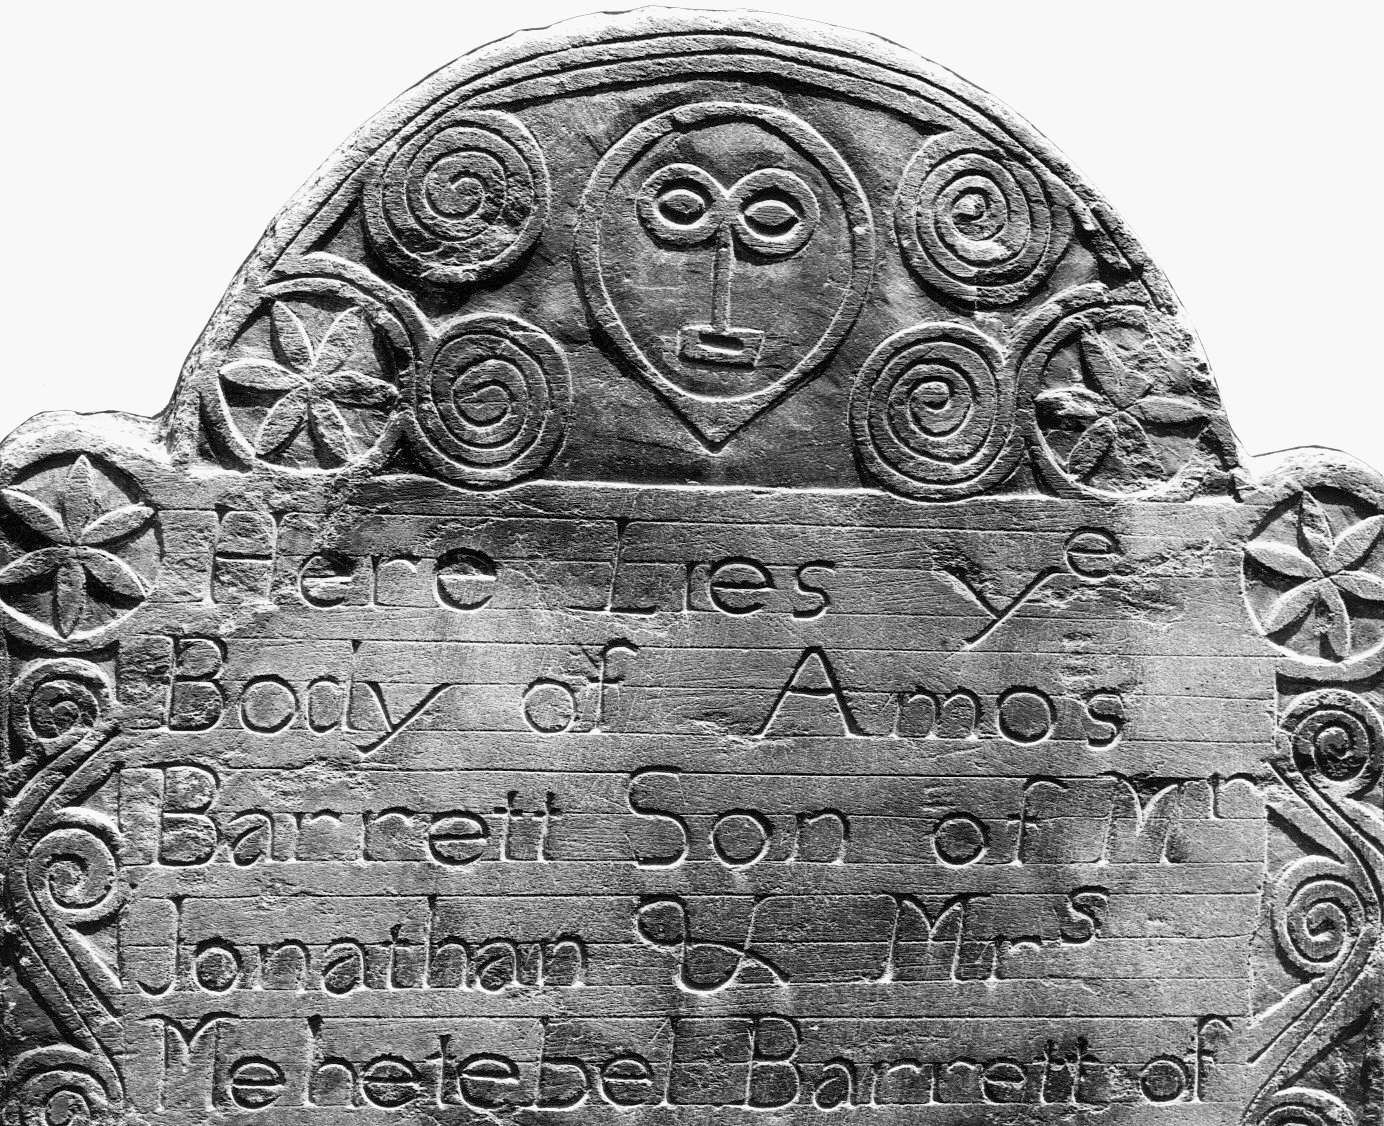 Here Lies ye
Body of Amos
Barrett Son of Mr
Jonathan & Mrs
Mehetebel Barrett of